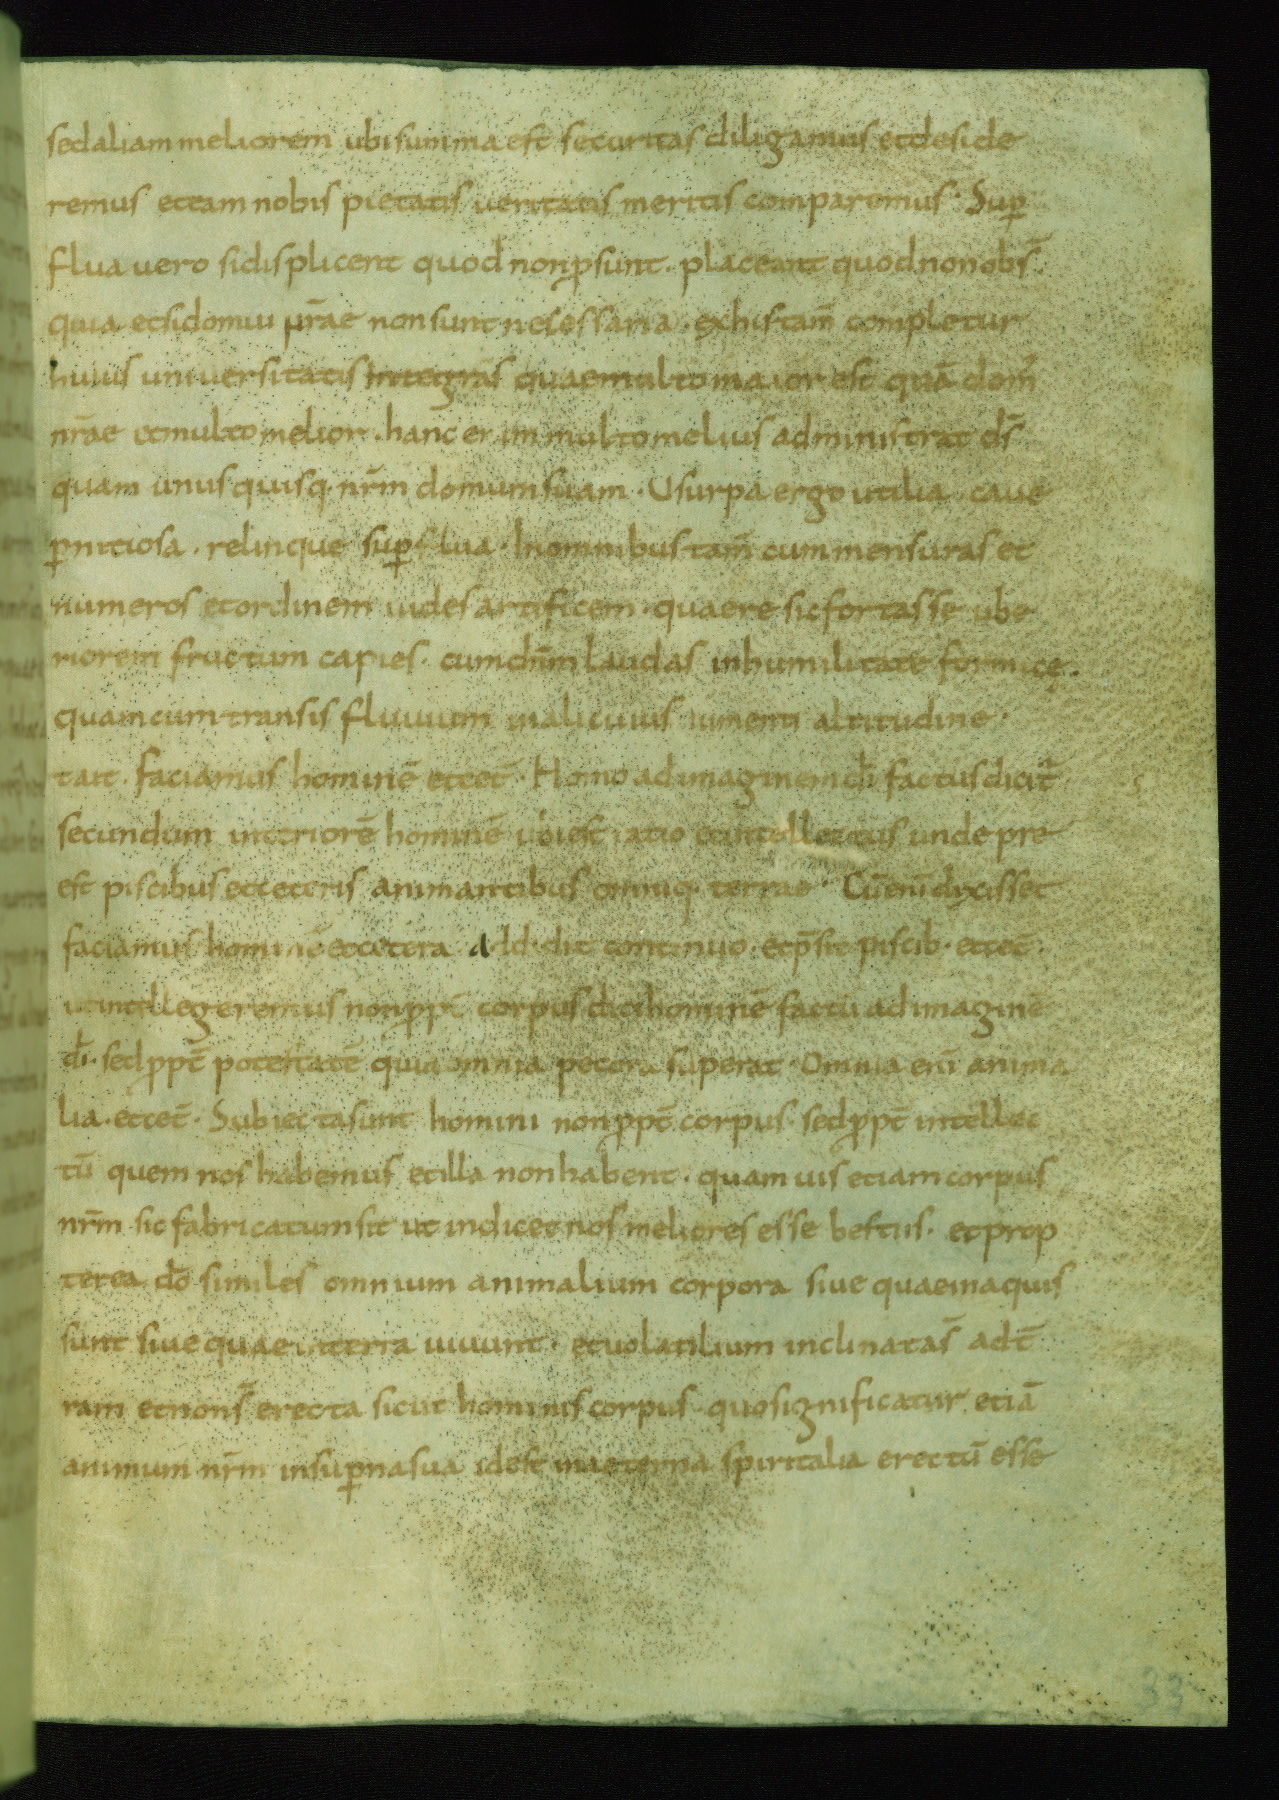 sed aliam meliorem ubi summa est securitas diligamus et deside
remus et eam nobis pietatis ueritatis meritis comparemus · Sup̲
flua uero si displicent quod non p̲sunt · placeant quod non obs̄ ·
quia etsi domui n̄rae non sunt necessaria · ex his tam̄ completur
huius uniuersitatis integras quae multo maior est quā dom̄
n̄rae et multo melior · hanc enim multo melius administrat d̄s
quam unus quisq· nr̄m domum suam · Usurpa ergo utilia · caue
p̲nitiosa · relinque sup̲flua · In omnibus tam̄ cum mensuras et
numeros et ordinem uides artificem · quaere sic fortasse ube
riorem fructum capies · cum dn̄m laudas in humilitate formice ·
quam cum transis fluuium in alicuius iumenti altitudine ·
tatt · faciamus hominē et cet̄ · Homo ad imaginem di̅ factus dicit̄
secundum interiorē hominē ubi est ratio et intellectus unde pre
est piscibus et ceteris animantibus omniq· terrae · Cū enī dixisset
faciamus hominē et cetera add·dit continuo · et p̄sit piscib· et cet̄ ·
ut intellegeremus non p̲pt̄ corpus dici hominē factū ad imaginē
di̅ · sed p̲pt̄ potestatē quia omnia pecora superat · Omnia enī anima
lia · et cet̄ · Subiecta sunt homini non p̲pt̄ corpus · sed p̲pt̄ intellec
tū quem nos habemus et illa non habent · quam uis etiam corpus
nr̄m sic fabricatum sit ut indicet nos meliores esse bestiis · et prop
terea do̅ similes omnium animalium corpora siue quae in aquis
sunt siue quae in terra uiuunt · et uolatilium inclinata s̄ ad t̄
ram et non s̄ erecta sicut hominis corpus · quo significatur etiā
animum nr̄m in sup̲na sua id est in aeterna spiritalia erectū esse
33